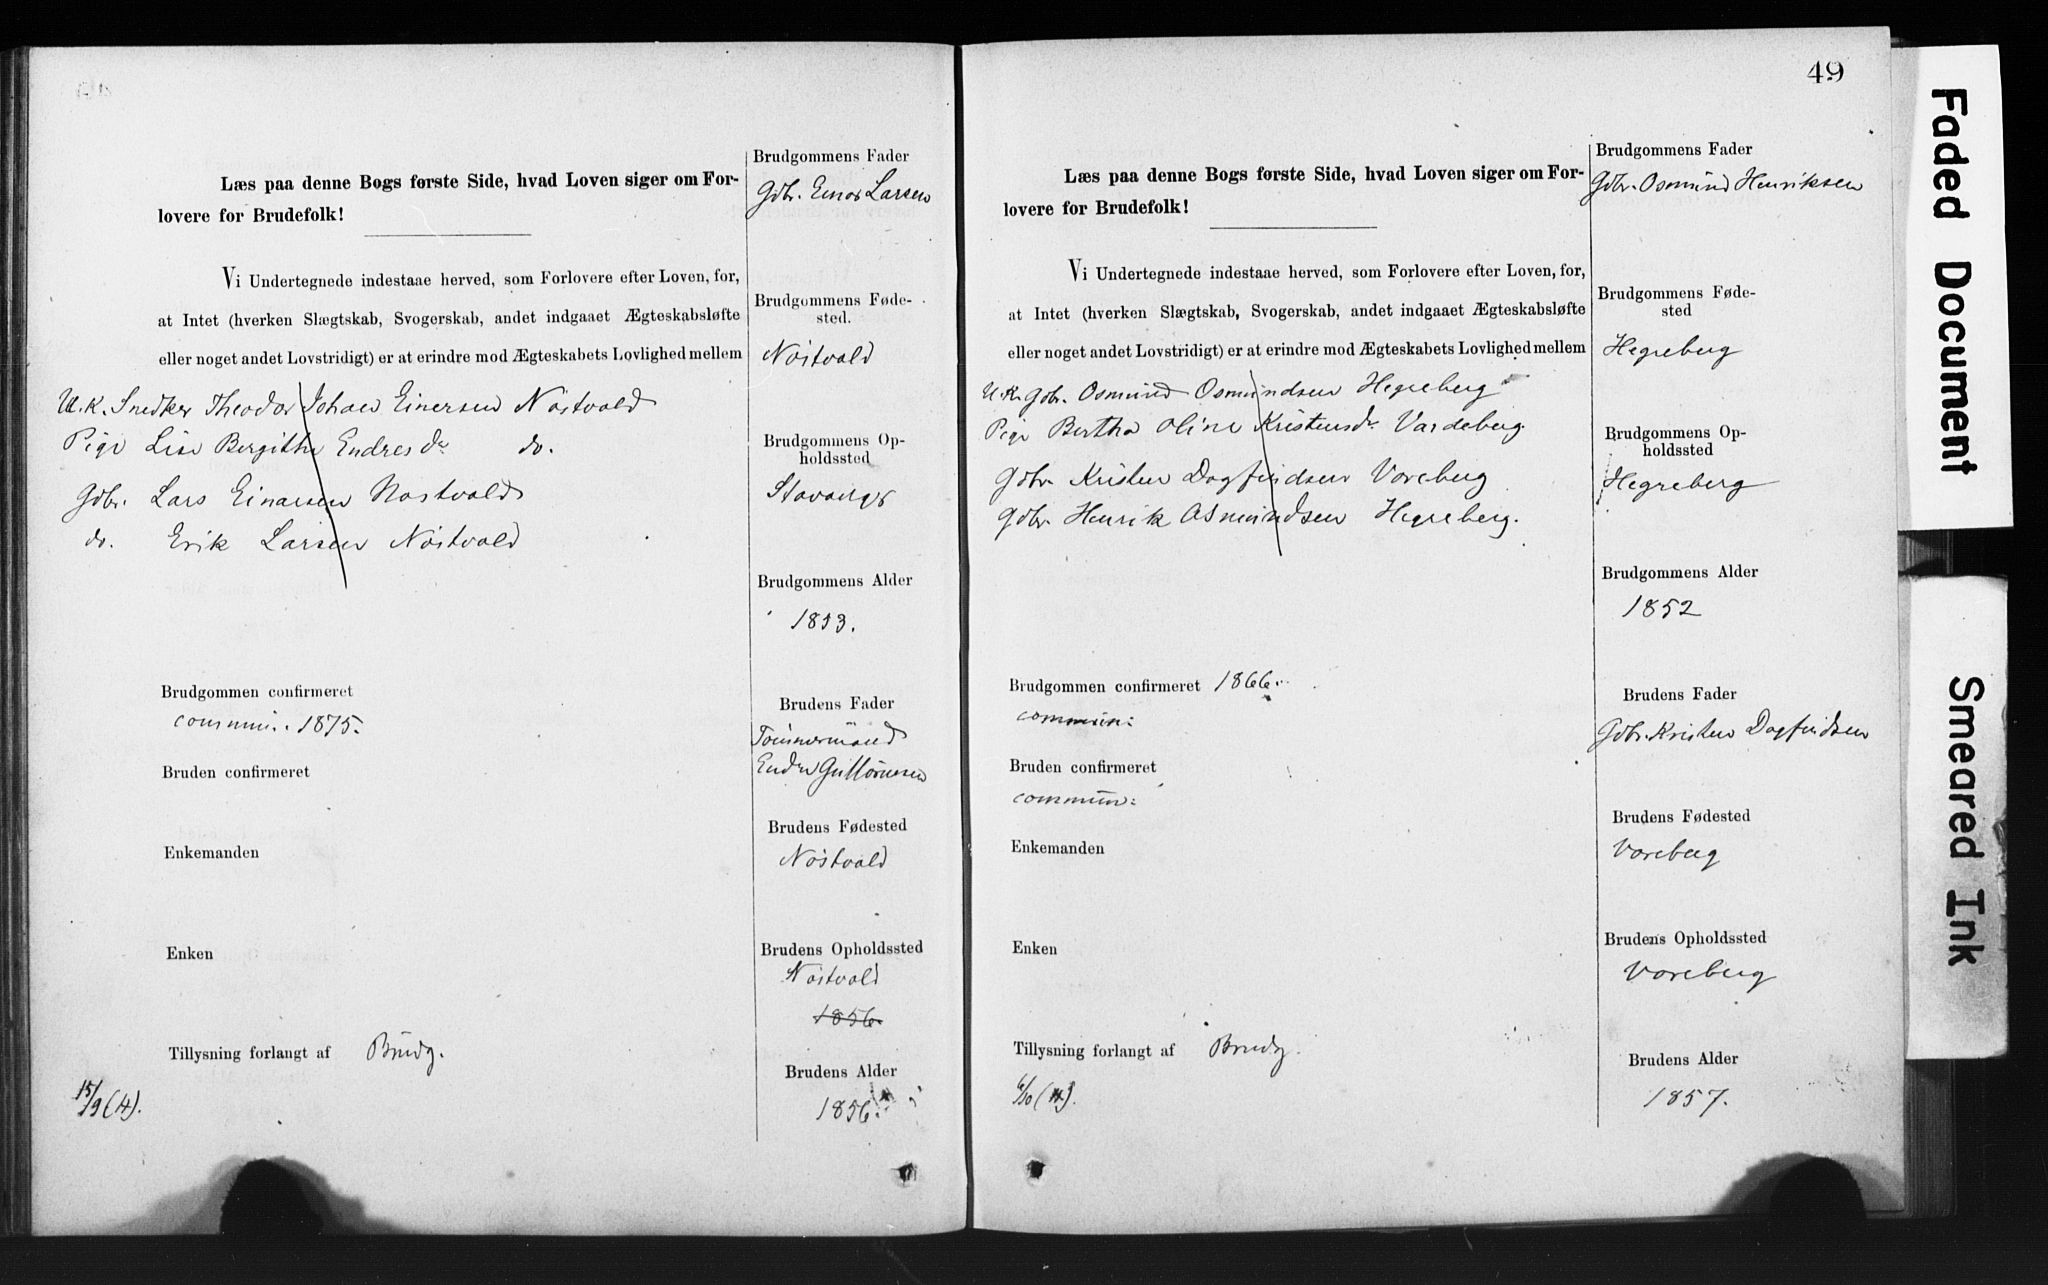 Læs paa denne Bogs første Side, hvad Loven siger om For-
lovere for Brudefolk!
Vi Undertegnede indestaae herved, som Forlovere efter Loven, for,
at Intet (hverken Slægtskab, Svogerskab, andet indgaaet Ægteskabsløfte
eller noget andet Lovstridigt) er at erindre mod Ægteskabets Lovlighed mellem
U. K. Snedker Theodor Johan Einersen Nostvold
Pige Lise Bergithe Endresdr do.
Gdbr. Lars Einarsen Nostvold
do. Erik Larsen Nostvold
Brudgommen confirmeret
commun. 1875.
Bruden confirmeret
Enkemanden
Enken
Tillysning forlangt af Brudg.
15/9 (4).
Brudgommens Fader
Gdbr. Einar Larsen
Brudgommens Føde-
sted.
Nostvold
Brudgommens Op-
holdssted
Stavanger
Brudgommens Alder
1853.
Brudens Fader
Tömmermand
Endre Guttormsen
Brudens Fødested
Nostvold
Brudens Opholdssted
Nostvold
1856.
Brudens Alder
1856.
49
Læs paa denne Bogs første Side, hvad Loven siger om For-
lovere for Brudefolk!
Vi Undertegnede indestaae herved, som Forlovere efter Loven, for,
at Intet (hverken Slægtskab, Svogerskab, andet indgaaet Ægteskabsløfte
eller noget andet Lovstridigt) er at erindre mod Ægteskabets Lovlighed mellem
U. K. Gdbr. Osmund Osmundsen Hegreberg
Pige Bertha Oline Kristensdr Vardeberg
Gdbr. Kristen Dagfindsen Voreberg
Gdbr. Henrik Asmundsen Hegreberg.
Brudgommen confirmeret 1866.
commun:
Bruden confirmeret
commun:
Enkemanden
Enken
Tillysning forlangt af Brudg.
6/10 (4).
Brudgommens Fader
Gdbr. Osmund Henriksen
Brudgommens Føde-
sted
Hegreberg
Brudgommens Op-
holdssted
Hegreberg
Brudgommens Alder
1852
Brudens Fader
Gdbr. Kristen Dagfindsen
Brudens Fødested
Voreberg
Brudens Opholdssted
Voreberg
Brudens Alder
1857.
Faded Document
Smeared Ink